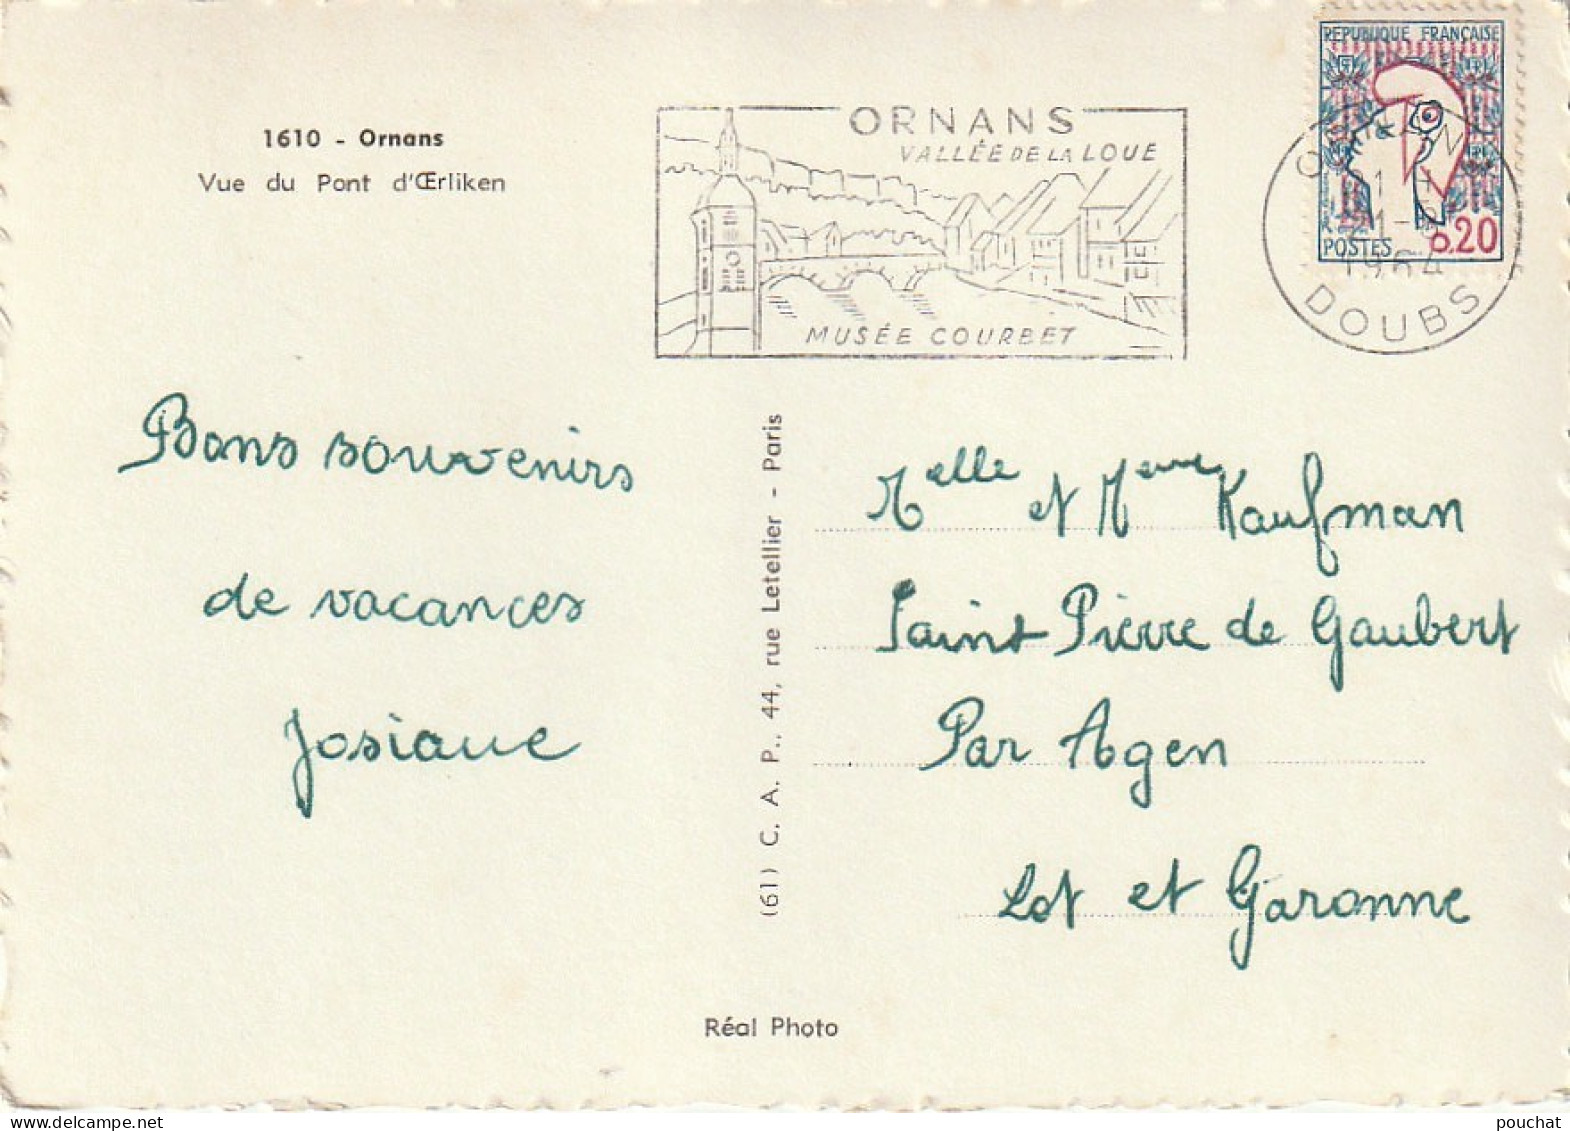 1610 - Ornans
Vue du Pont d'Œrliken
ORNANS
VALLÉE DE LA LOUE
MUSÉE COURBET
REPUBLIQUE FRANÇAISE
POSTES
0.20
ORNANS
21-8
1964
DOUBS
Bons souvenirs
de vacances
Josiane
(61) C. A. P., 44, rue Letellier - Paris
Melle et Mme Kaufman
Saint Pierre de Gaubert
Par Agen
Lot et Garonne
Réal Photo
pouchat